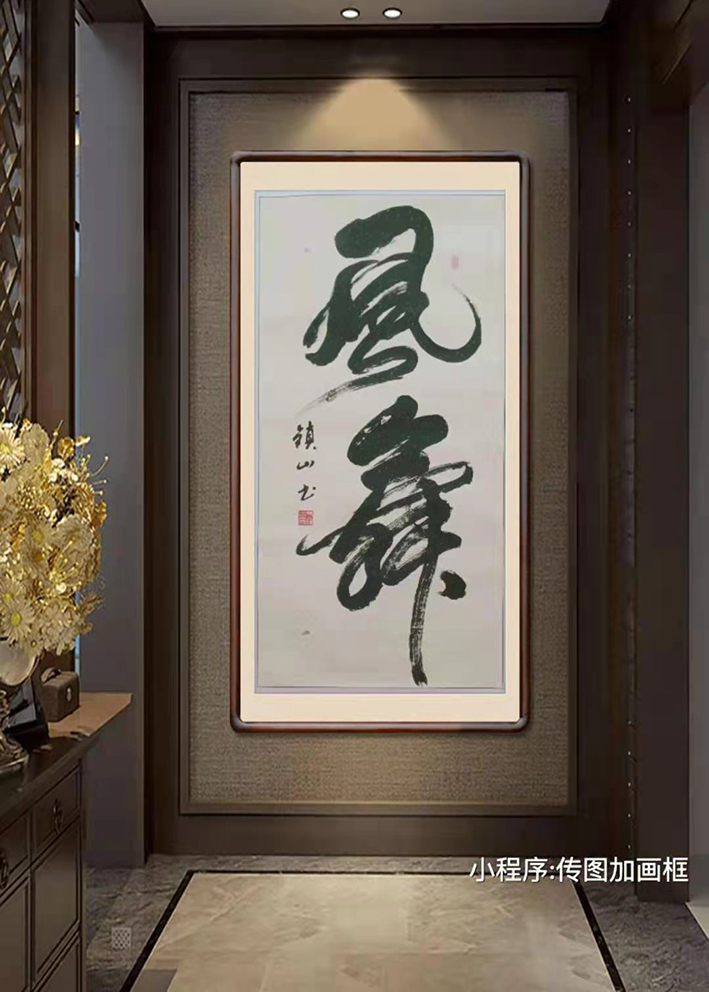 風舞
鎮山书
小程序:传图加画框